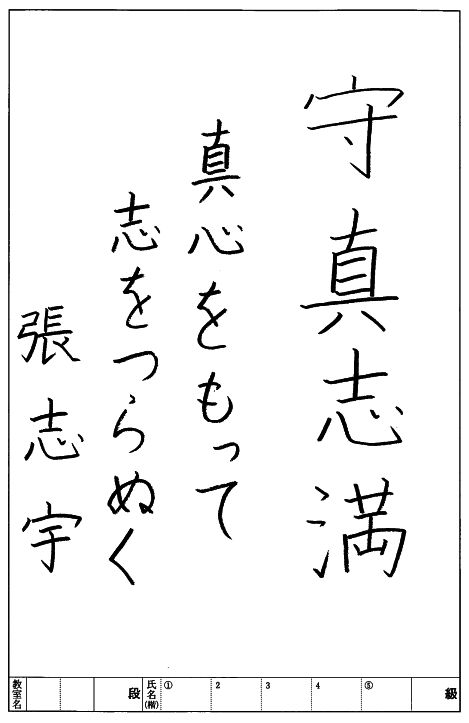 守真志満
真心をもって
志をつらぬく
張志宇
級 ⑤ 4 3 2 ① 氏名(楷) 段 教室名